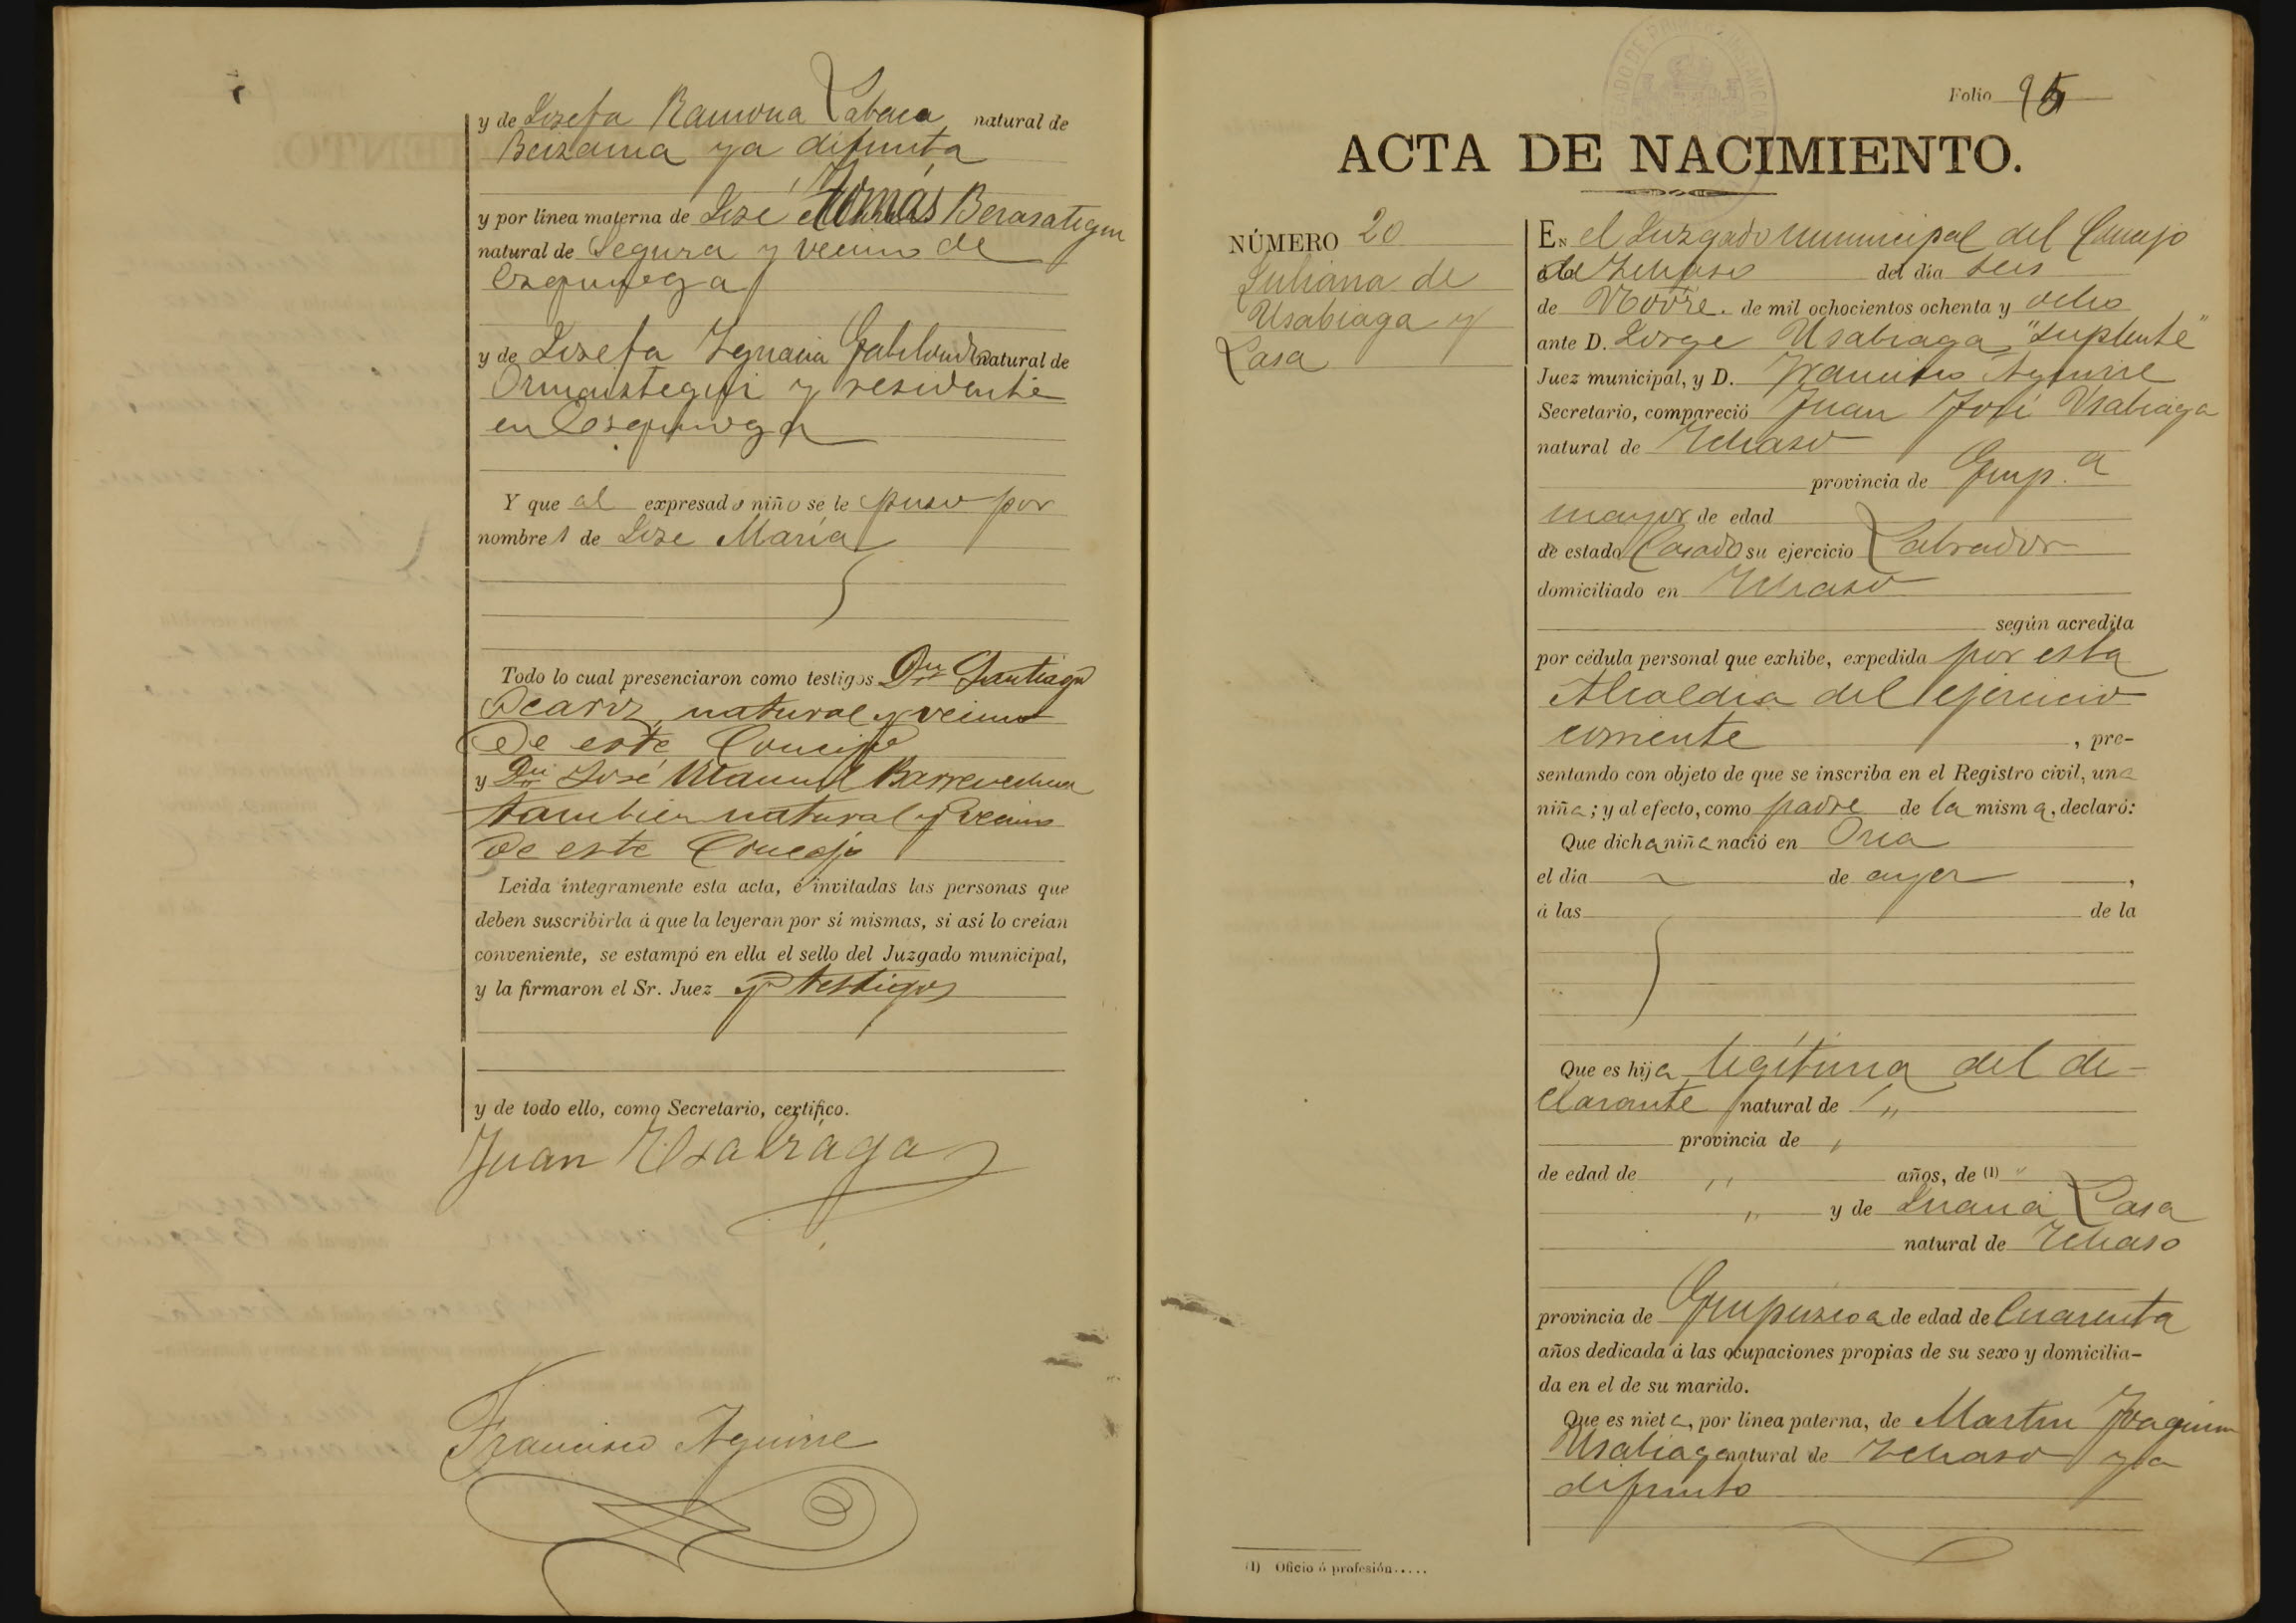 y de Josefa Ramona Labaca natural de
Beizama ya difunta
y por línea materna de José Tomás Berasategui
natural de Segura y vecino de
Ezquioga
y de Josefa Ygnacia Gabilondo natural de
Ormaiztegui y residente
en Ezquioga
Y que al expresado niño se le puso por
nombre de José María
Todo lo cual presenciaron como testigos Dn Santiago
natural y vecino
de este Concejo
y Dn José Manuel Barrenechea
tambien natural y vecino
de este Concejo
Leida íntegramente esta acta, é invitadas las personas que
deben suscribirla á que la leyeran por sí mismas, si así lo creían
conveniente, se estampó en ella el sello del Juzgado municipal,
y la firmaron el Sr. Juez y testigos
y de todo ello, como Secretario, certifico.
Juan Usabiaga
Francisco Aguirre
Folio 95
ACTA DE NACIMIENTO.
NÚMERO 20
Juliana de
Usabiaga y
Lasa
En el Juzgado municipal del Concejo
de Ychaso del día seis
de Novre. de mil ochocientos ochenta y ocho
ante D. Jorge Usabiaga "suplente"
Juez municipal, y D. Francisco Aguirre
Secretario, compareció Juan José Usabiaga
natural de Ychaso
provincia de Guip.a
mayor de edad
de estado Casado su ejercicio Labrador
domiciliado en Ychaso
según acredita
por cédula personal que exhibe, expedida por esta
Alcaldia del ejercicio
corriente , pre-
sentando con objeto de que se inscriba en el Registro civil, una
niña; y al efecto, como padre de la misma, declaró:
Que dicha niña nació en Oria
el día de ayer ,
á las de la
Que es hija legítima del de-
clarante natural de "
provincia de "
de edad de " años, de (1) "
" y de Juana Lasa
natural de Ychaso
provincia de Guipuzcoa de edad de Cuarenta
años dedicada á las ocupaciones propias de su sexo y domicilia-
da en el de su marido.
Que es nieta, por línea paterna, de Martin Joaquin
Usabiaga natural de Ychaso ya
difunto
(1) Oficio ó profesión.....